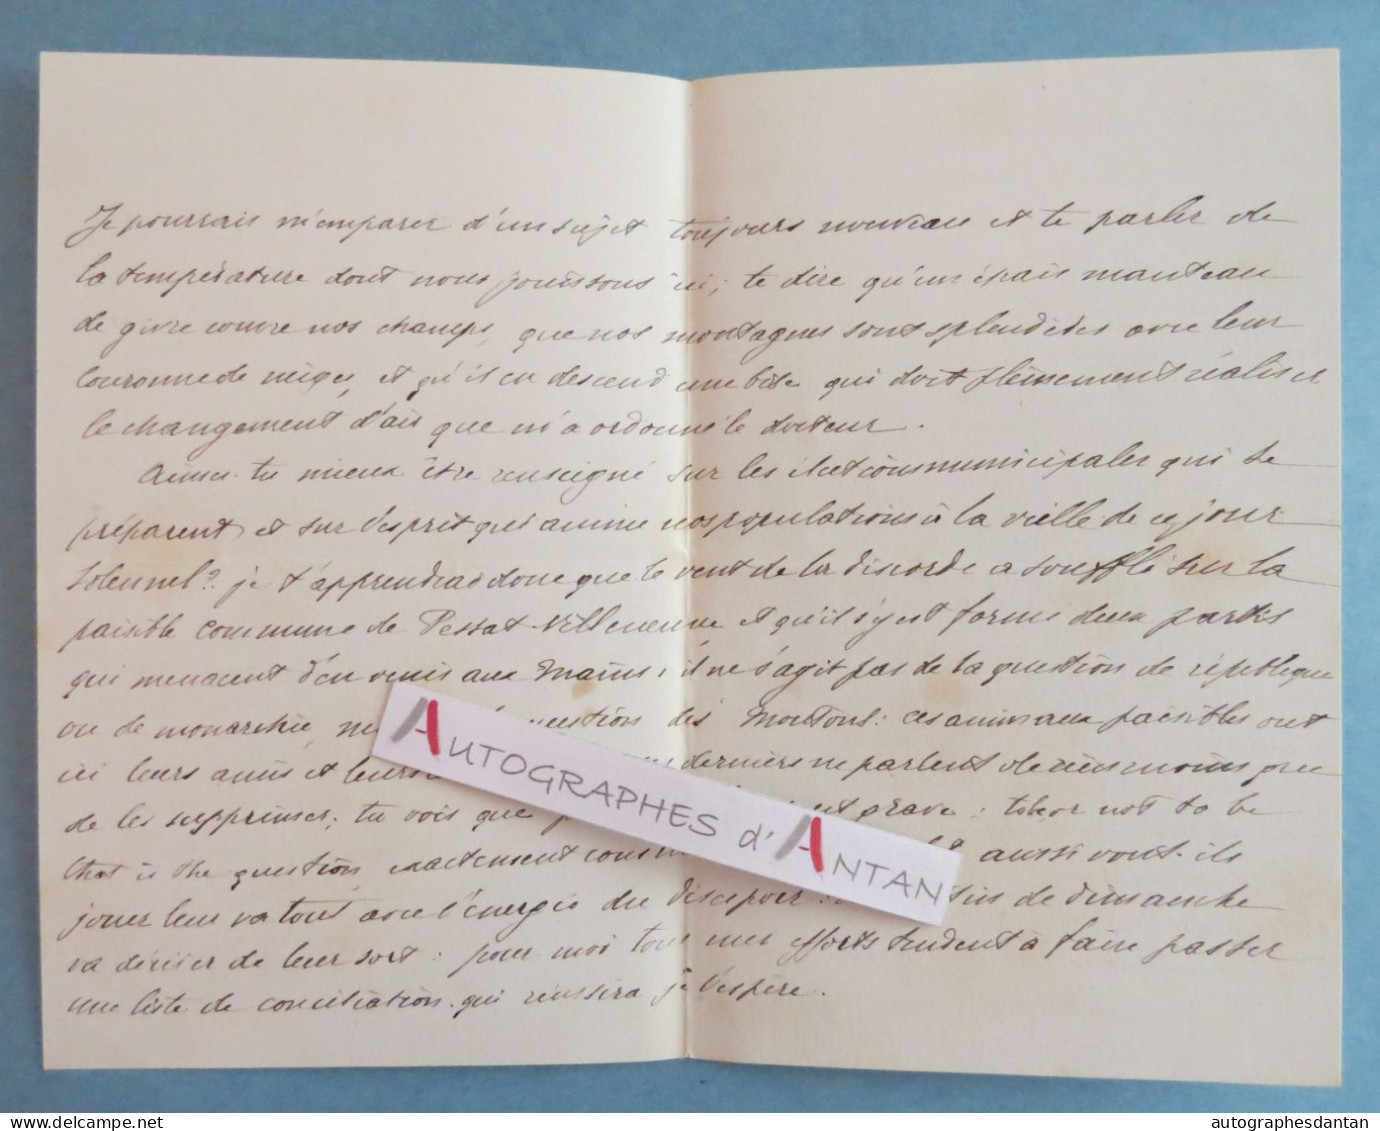 Je pourrais m'emparer d'un sujet toujours nouveau et te parler de
la température dont nous jouissons ici; te dire qu'un épais manteau
de givre couvre nos champs, que nos montagnes sont splendides avec leur
couronne de neige, et qu'il en descend une bise qui doit pleinement réaliser
le changement d'air que m'a ordonné le docteur.
Aimes-tu mieux être renseigné sur les élections municipales qui se
préparent, et sur l'esprit qui anime nos populations à la veille de ce jour
solennel? je t'apprendrai donc que le vent de la discorde a soufflé sur la
paisible commune de Pessat-Villeneuve et qu'il s'y est formé deux partis
qui menacent d'en venir aux mains; il ne s'agit pas de la question de république
ou de monarchie, question des moutons: ces animaux paisibles ont
ici leurs amis et leurs derniers ne parlent de rien moins que
de les supprimer; tu vois que grave: to be or not to be
that is the question, exactement comme aussi vont-ils
jouer leur va tout avec l'énergie du désespoir: de dimanche
va décider de leur sort: pour moi tous mes efforts tendent à faire passer
une liste de conciliation qui réussira je l'espère.
AUTOGRAPHES d'ANTAN
autographesdantan